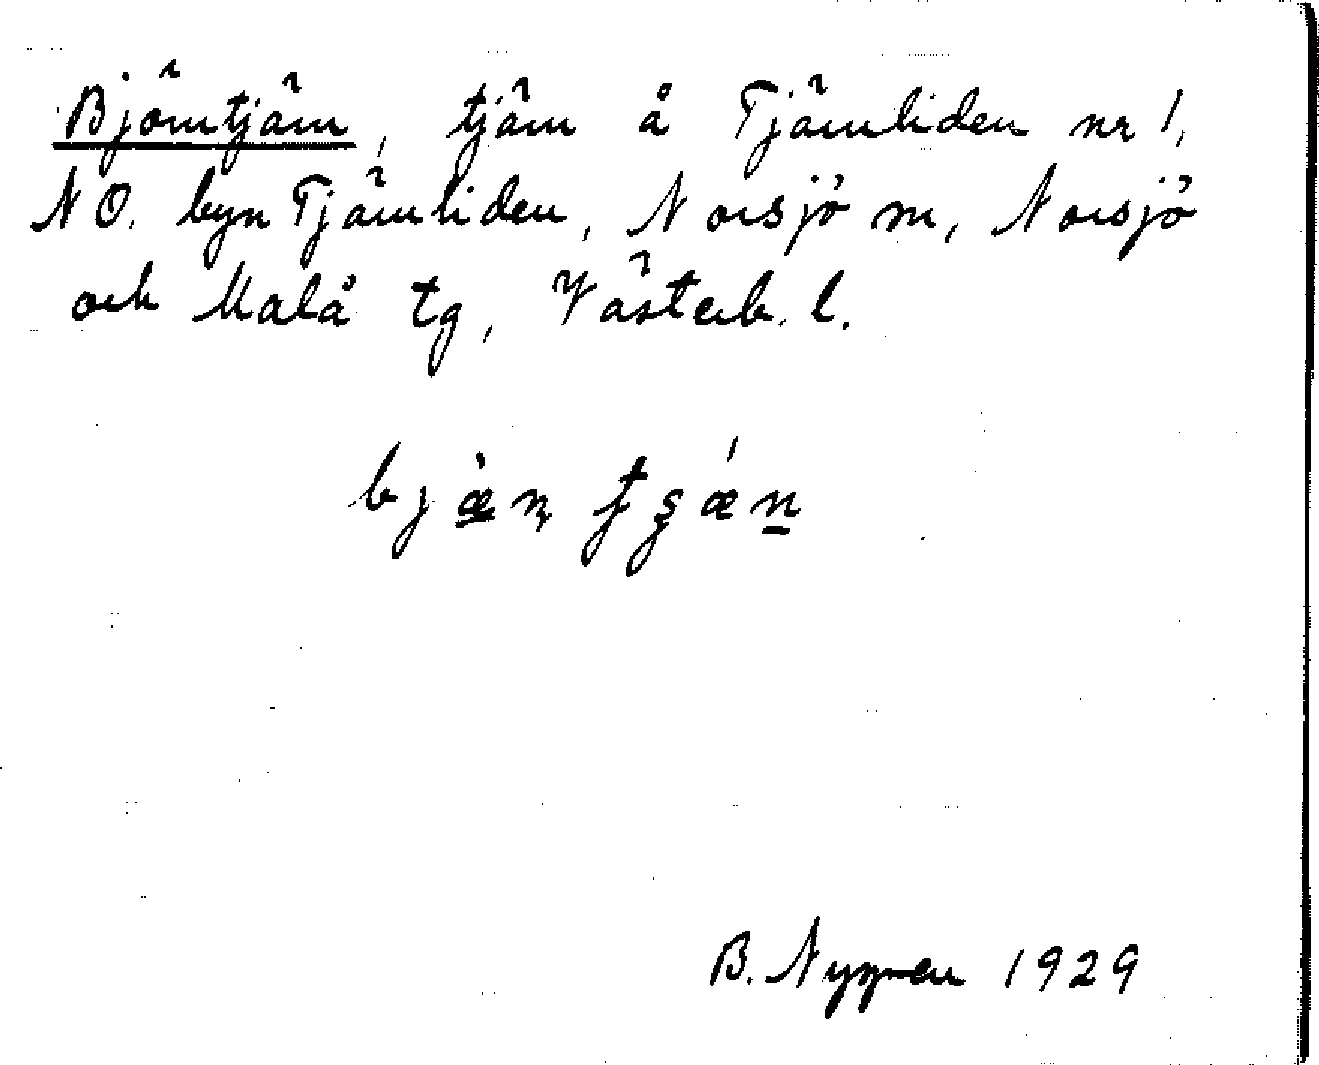 Björntjärn, tjärn å Tjärnliden nr 1,
NO. byn Tjärnliden, Norsjö sn, Norsjö
och Malå tg, Västerb. l.
bjæ̀ṇ tʂǽn
B. Nygren 1929